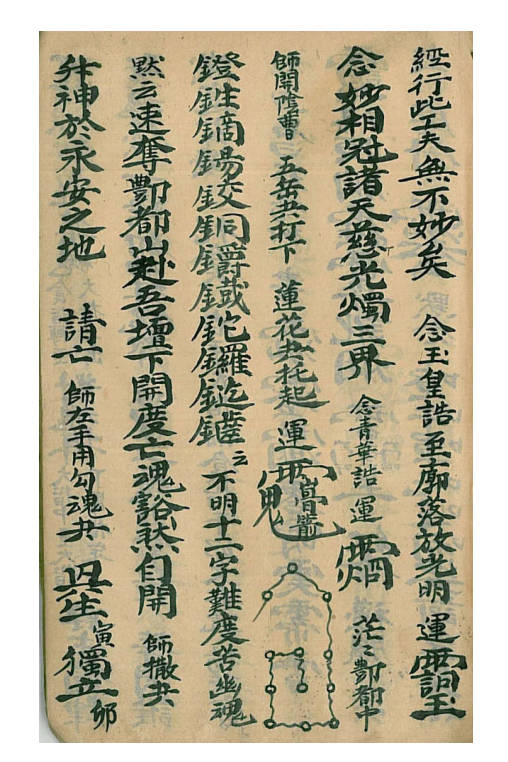 經行此工夫無不妙矣 念玉皇誥至廓落放光明 運
念妙相冠諸天慈光燭三界 念青華誥 運 茫々酆都中
師開陰曹 五岳共打下 蓮花共托起 運
鐙鉎鏑鍚鉸銅鉈鑼 云 不明十二字難度苦幽魂
默云速奪酆都山赴吾壇下開度亡魂豁然自開 師撒共
升神於永安之地 請亡 師左手用勾魂共 生寅獨立卯